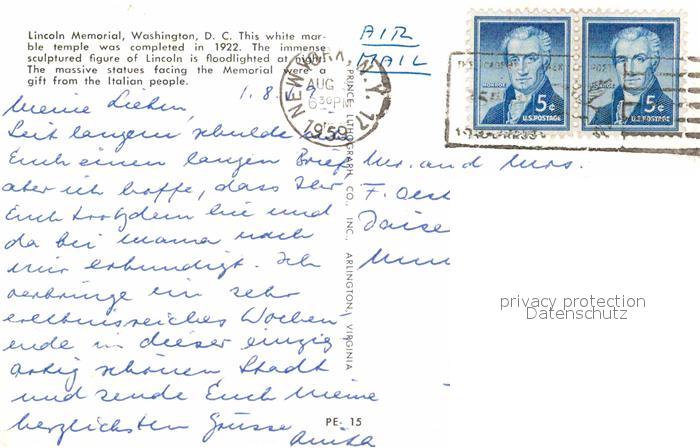 Lincoln Memorial, Washington, D. C. This white mar-
ble temple was completed in 1922. The immense
sculptured figure of Lincoln is floodlighted at night.
The massive statues facing the Memorial were a
gift from the Italian people.
AIR
MAIL
NEW YORK, N.Y. 17
AUG
630PM
1959
MONROE
5¢
U.S. POSTAGE
5¢
U.S. POSTAGE
1.8.59
Meine Lieben,
Seit langem schulde ich
Euch einen langen Brief
aber ich hoffe, dass Ihr
Euch trotzdem hie und
da bei Mama nach
mir erkundigt. Ich
verbringe ein sehr
erlebnisreiches Wochen
ende in dieser einzig
artig schönen Stadt
und sende Euch meine
herzlichsten Grüsse
Anita
PRINCE LITHOGRAPH CO., INC., ARLINGTON, VIRGINIA
PE- 15
Mr. and Mrs.
F. Oest
privacy protection
Datenschutz